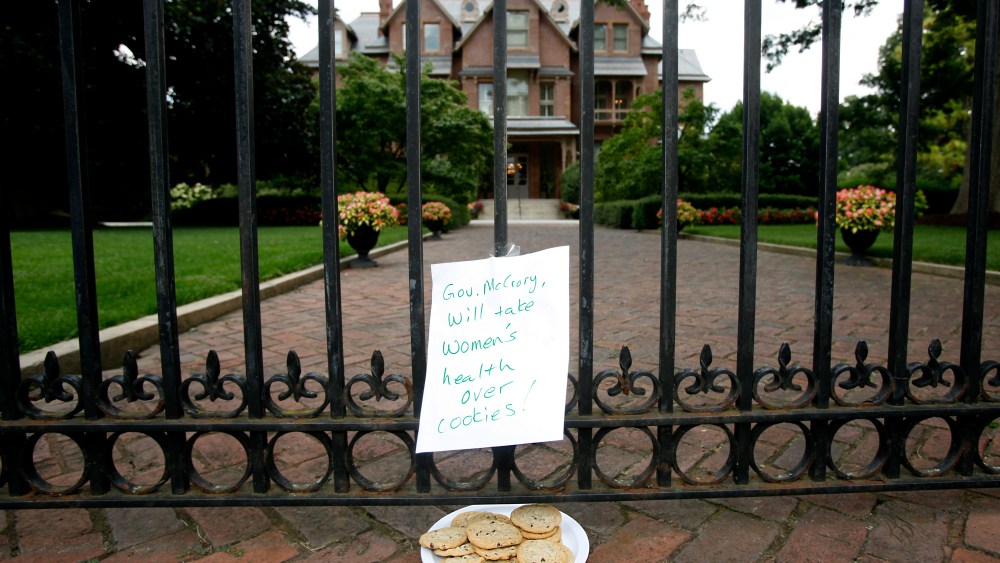 Gov. McCrory,
Will take
Women's
health
over
cookies!